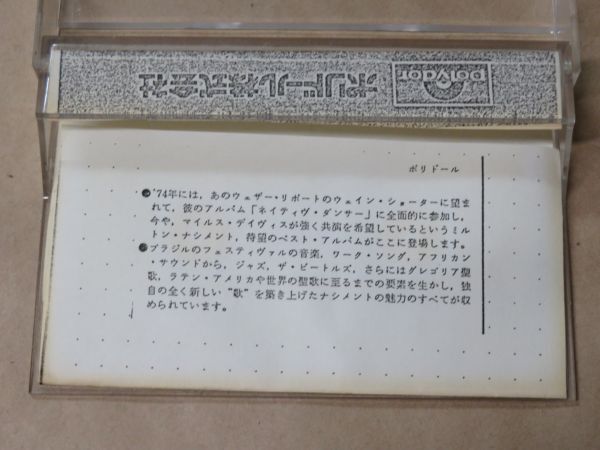 ポリドール株式会社
polydor
ポリドール
●'74年には，あのウェザー・リポートのウェイン・ショーターに望ま
れて，彼のアルバム「ネイティヴ・ダンサー」に全面的に参加し，
今や，マイルス・デイヴィスが強く共演を希望しているというミル
トン・ナシメント，待望のベスト・アルバムがここに登場します。
●ブラジルのフェスティヴァルの音楽，ワーク・ソング，アフリカン
・サウンドから，ジャズ，ザ・ビートルズ，さらにはグレゴリア聖
歌，ラテン・アメリカや世界の聖歌に至るまでの要素を生かし，独
自の全く新しい“歌”を築き上げたナシメントの魅力のすべてが収
められています。